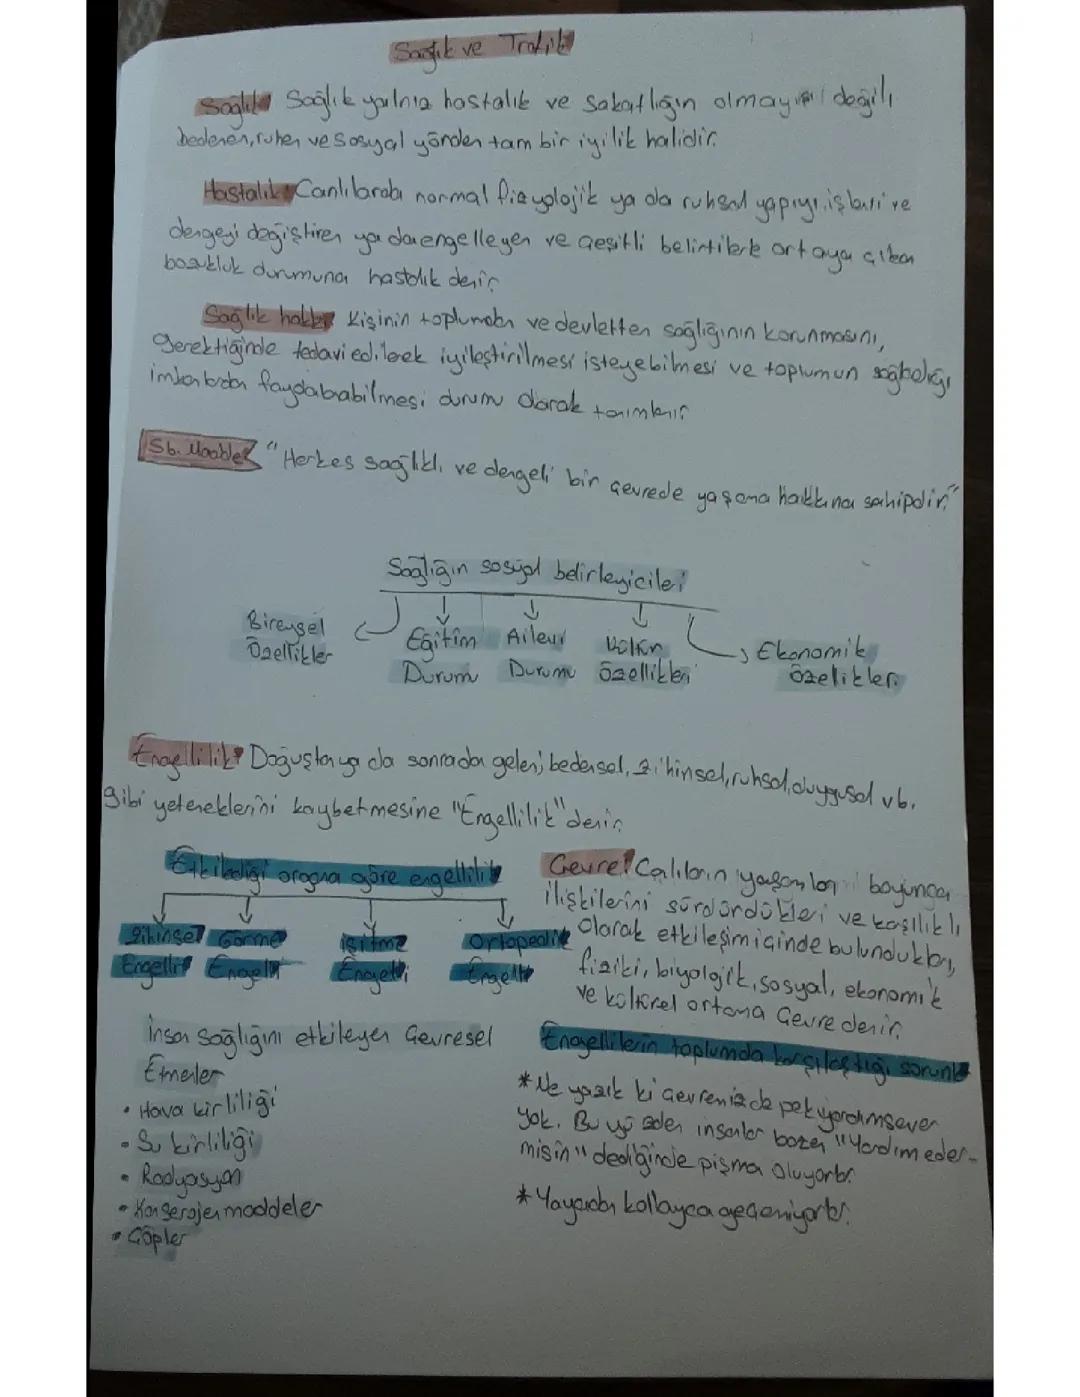 Sağlık ve Trafik
Sağlık: Sağlık yalnız hastalık ve sakatlığın olmayışı değil,
bedenen, ruhen ve sosyal yönden tam bir iyilik halidir.
Hastalık: Canlılarda normal fizyolojik ya da ruhsal yapıyı, işleri ve
dengeyi değiştiren ya da engelleyen ve çeşitli belirtilerle ortaya çıkan
bozukluk durumuna hastalık denir.
Sağlık hakkı: Kişinin toplumdan ve devletten sağlığının korunmasını,
gerektiğinde tedavi edilerek iyileştirilmesi isteyebilmesi ve toplumun sağladığı
imkanlardan faydalanabilmesi durum olarak tanımlanır.
56. Madde: "Herkes sağlıklı ve dengeli bir çevrede yaşama hakkına sahipdir."
Sağlığın sosyal belirleyicileri
Bireysel Özellikler
Eğitim Durum
Ailevi Durumu
özellikleri
Ekonomik özelikleri
Engellilik: Doğuştan ya da sonradan gelen; bedensel, zihinsel, ruhsal, duygusal vb.
gibi yeteneklerini kaybetmesine "Engellilik" denir.
Etkilediği organa göre engellilik
Zihinsel Engelli
Görme Engelli
İşitme Engelli
Ortopedik Engelli
İnsan sağlığını etkileyen Çevresel
Etmenler
• Hava kirliliği
• Su kirliliği
• Radyasyon
• Kanserojen maddeler
• Çöpler
Çevre: Canlıların yaşamları boyunca
ilişkilerini sürdürdükleri ve karşılıklı
olarak etkileşim içinde bulundukları,
fiziki, biyolojik, sosyal, ekonomik
ve kültürel ortama Çevre denir.
Engellilerin toplumda karşılaştığı sorunlar
* Ne yazık ki çevremizde pek yardımsever
yok. Bu yüzden insanlar bazen "Yardım eder-
misin" dediğinde pişma oluyorlar.
* Yayadan kollayca geçemiyorlar.